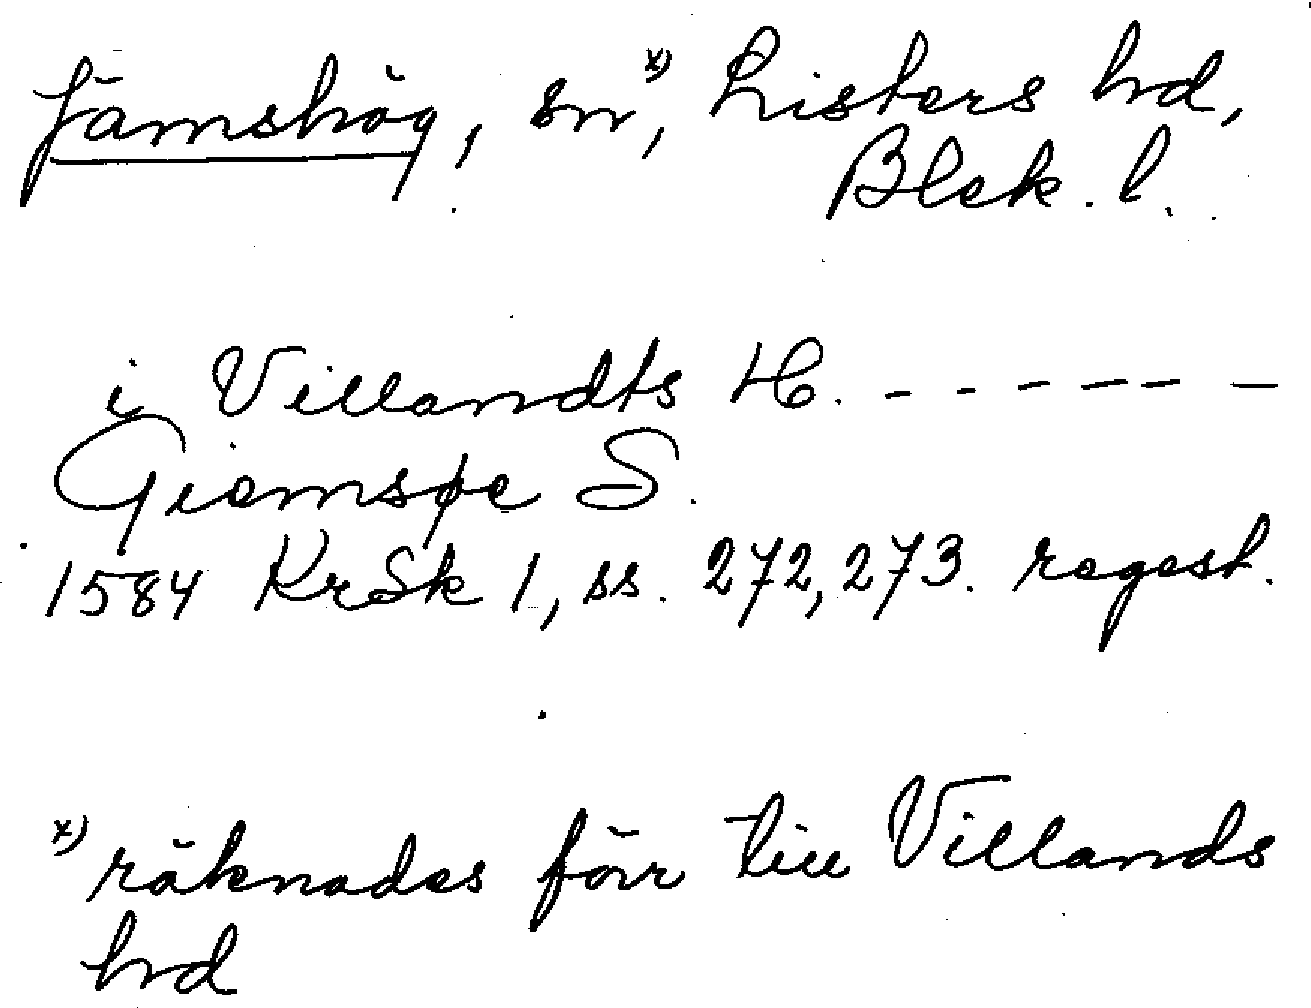 Jämshög, sn, x) Listers hd,
Blek. l.
i Villandts H. - - - - - -
Giemsøe S.
1584 KrSk 1, ss. 272, 273. regest.
x) räknades förr till Villands
hd